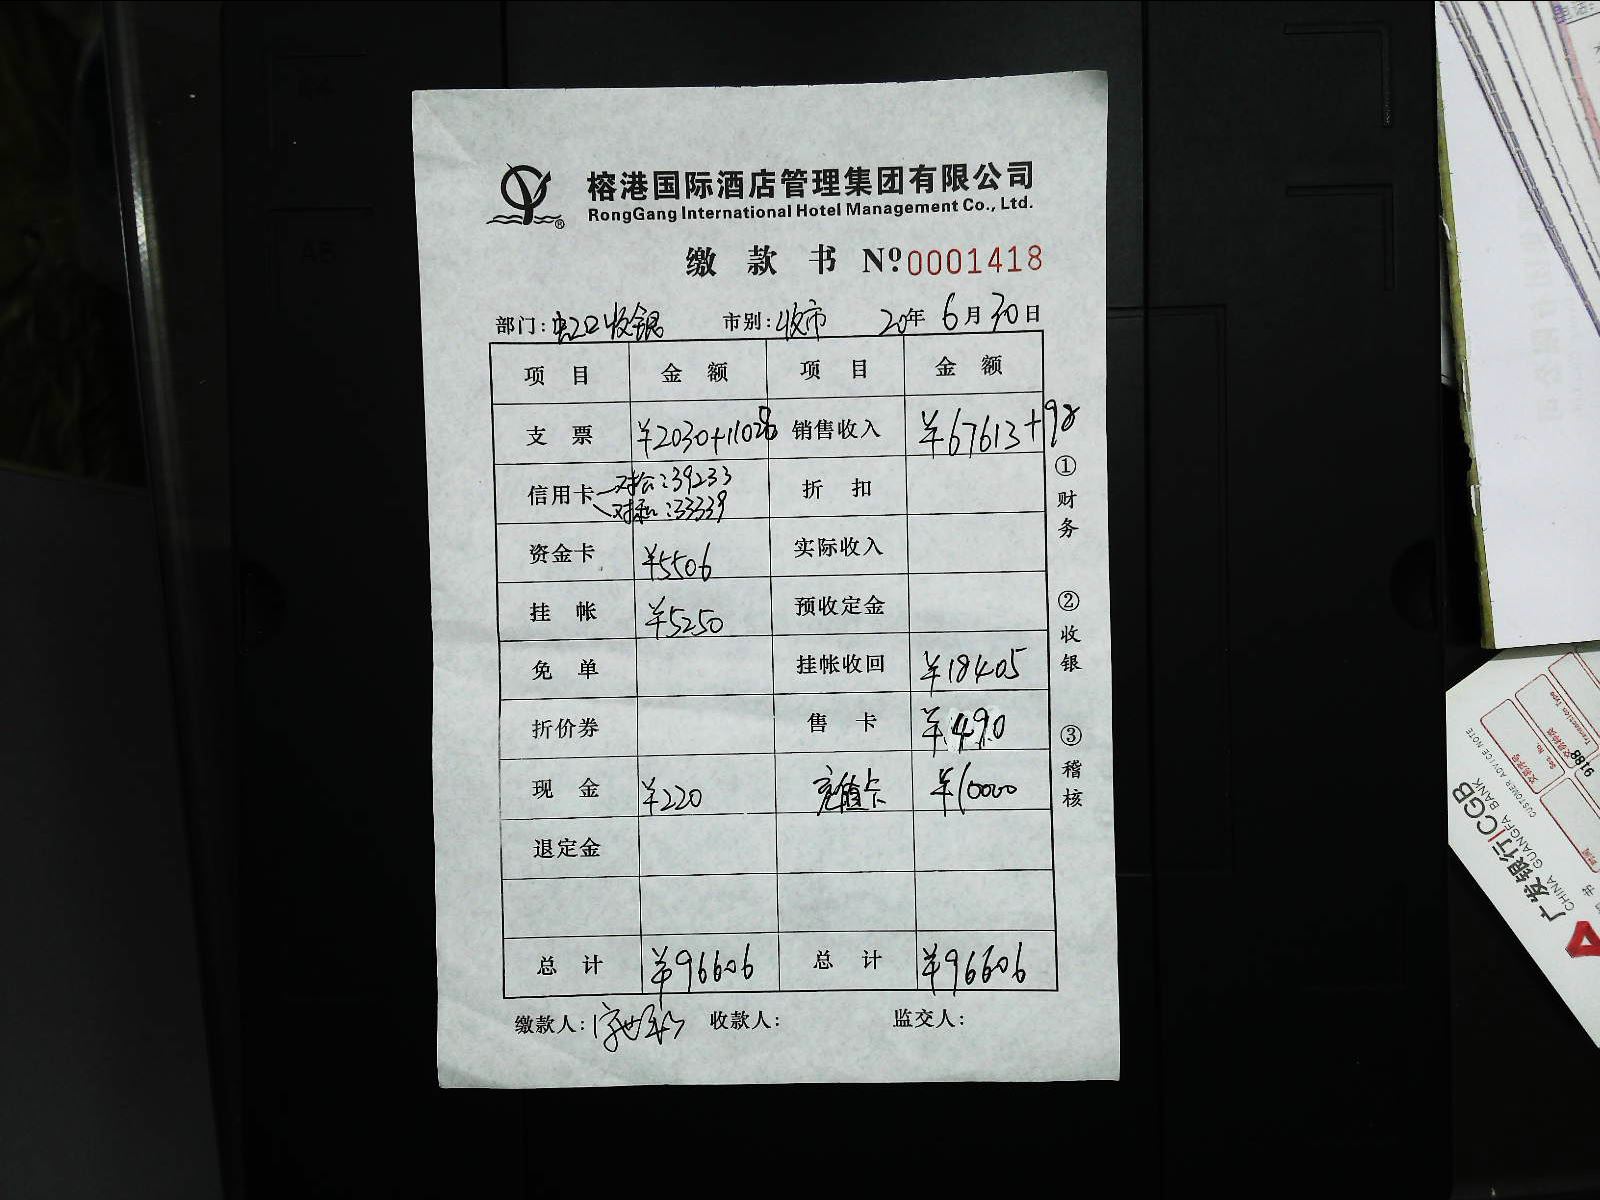 榕港国际酒店管理集团有限公司
RongGang International Hotel Management Co., Ltd.
缴款书 Nº 0001418
部门：虹口收银 市别：收市 20年6月30日
项目 金额 项目 金额
支票 ¥2030+11028 销售收入 ¥67613+98
信用卡 对公：39233 折扣
对私：33339
资金卡 ¥5506 实际收入
挂帐 ¥5250 预收定金
免单 挂帐收回 ¥18405
折价券 售卡 ¥490
现金 ¥220 充值卡 ¥10000
退定金
总计 ¥96606 总计 ¥96606
缴款人： 收款人： 监交人：
①财务
②收银
③稽核
广发银行|CGB
CHINA GUANGFA BANK
CUSTOMER ADVICE NOTE
交易种类
Transaction Type
交易序号
Seq. No.
9188